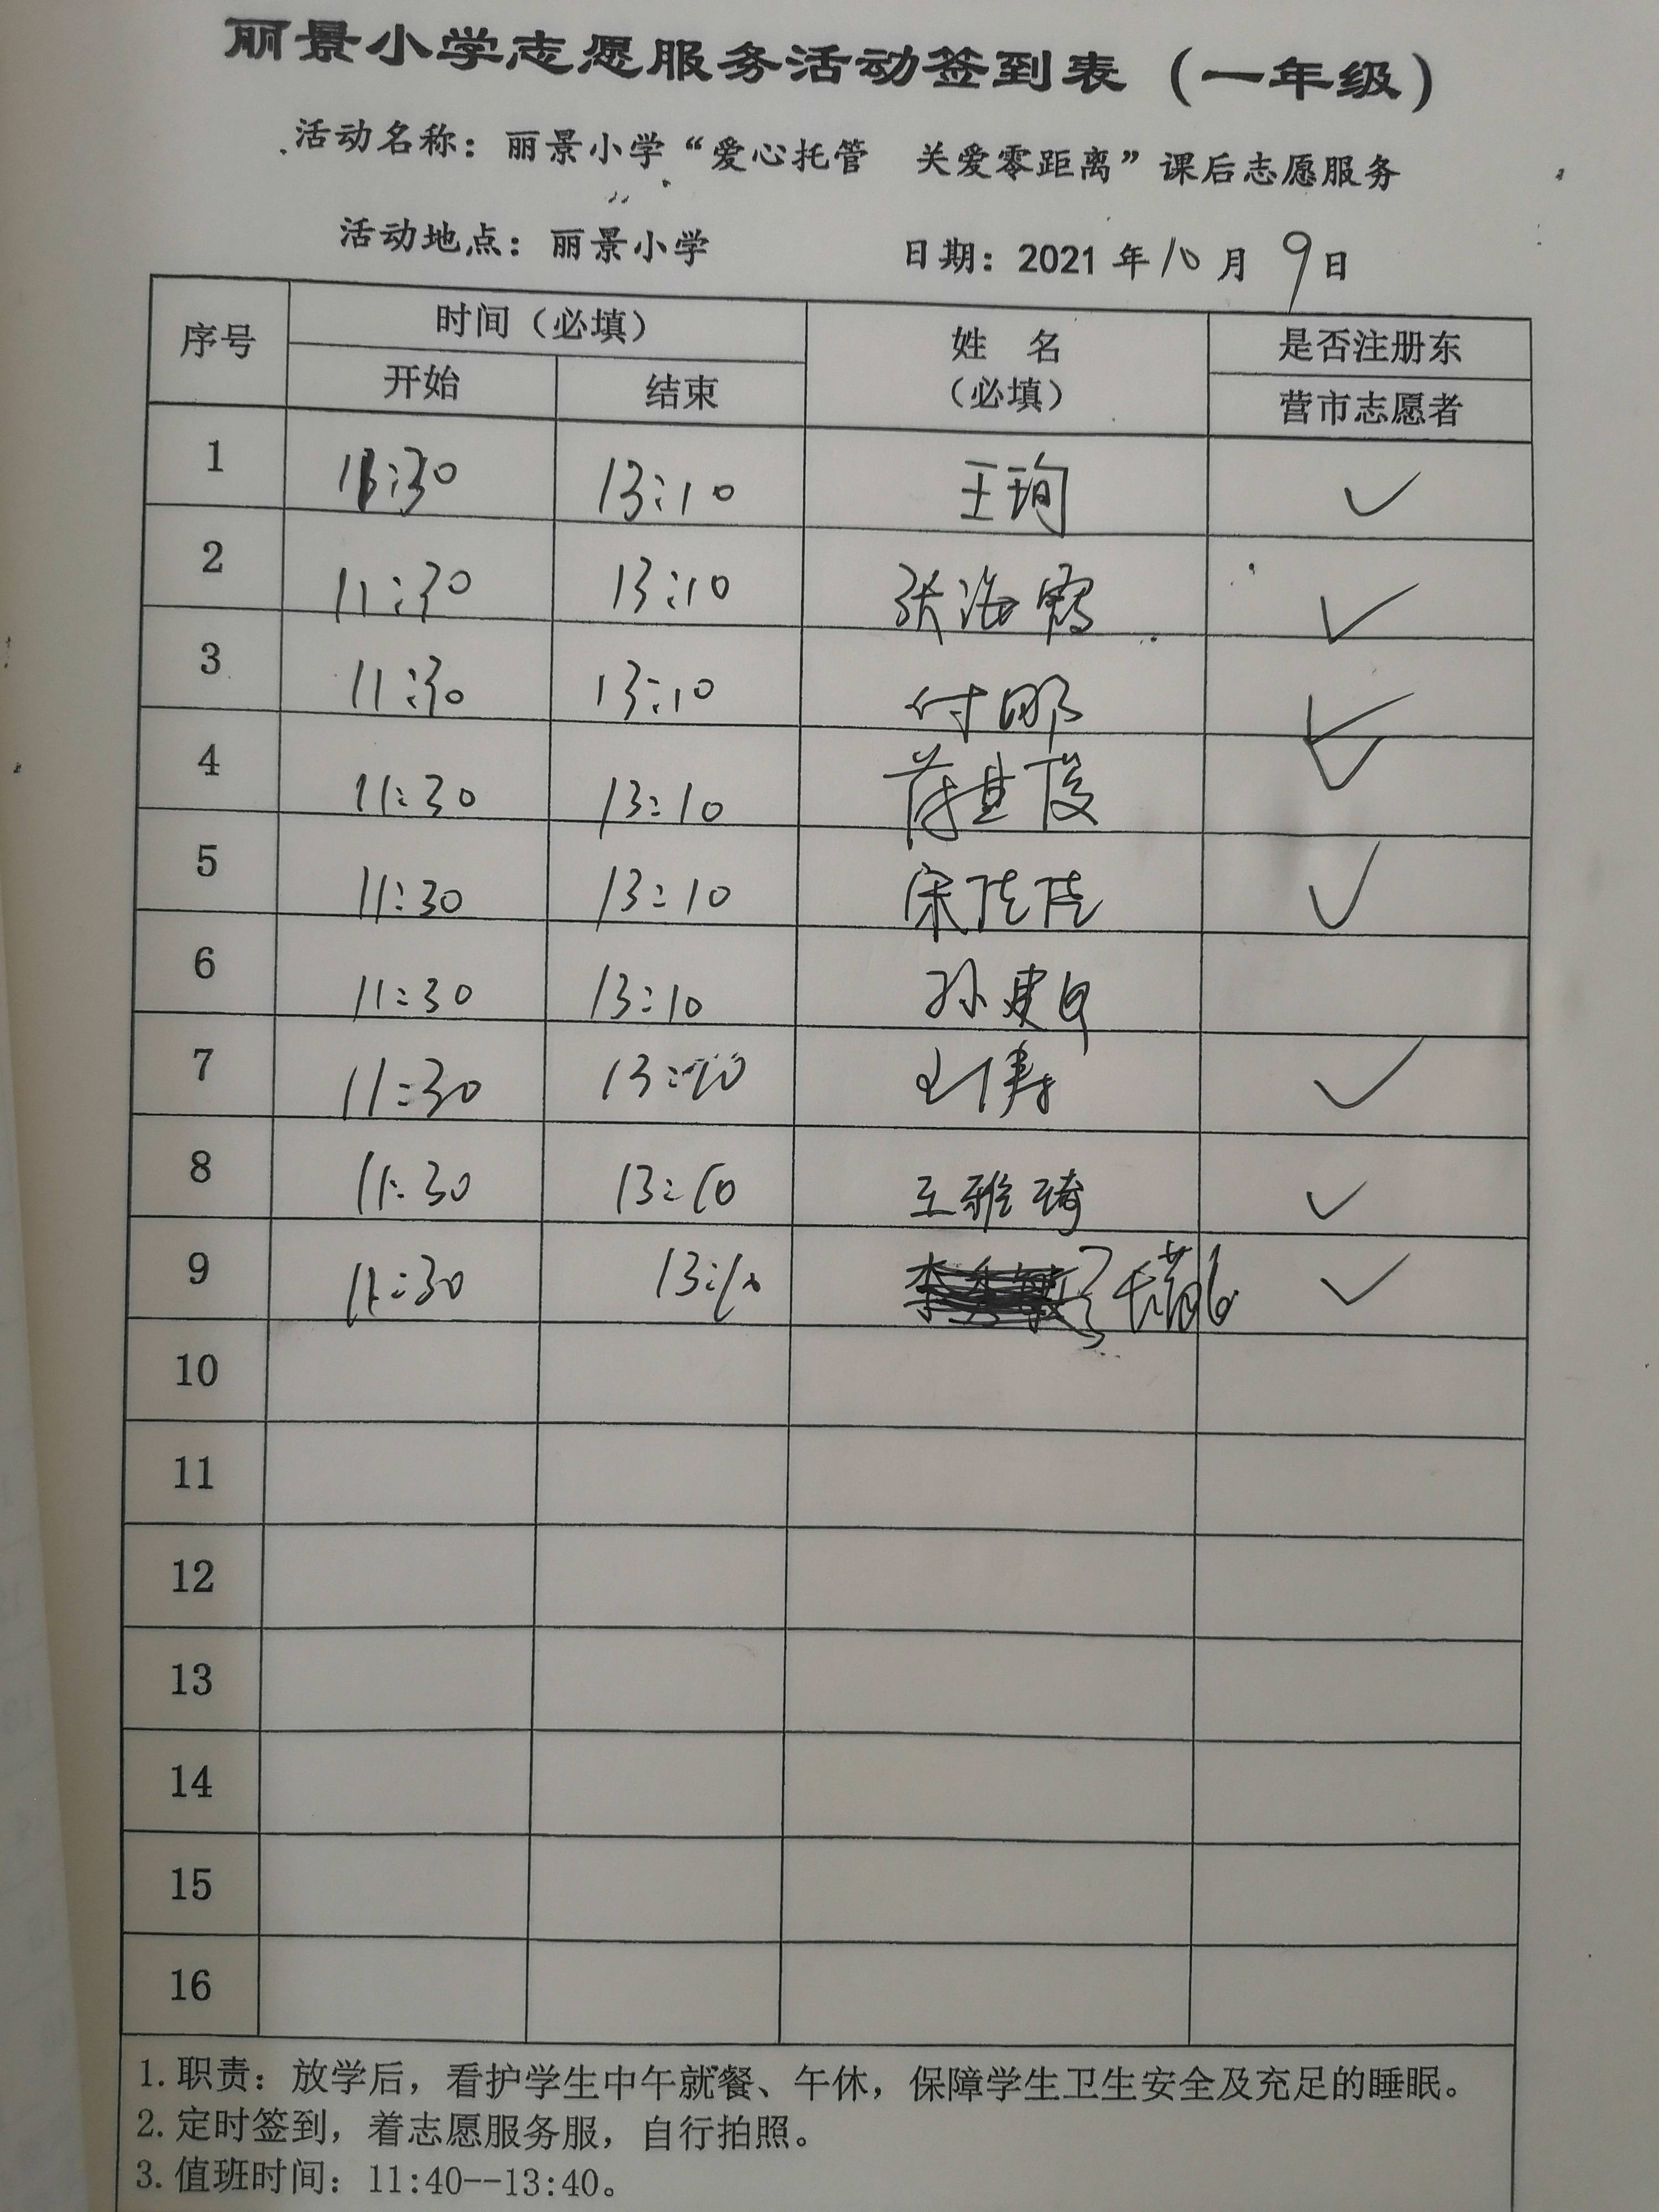 丽景小学志愿服务活动签到表（一年级）
活动名称：丽景小学“爱心托管 关爱零距离”课后志愿服务
活动地点：丽景小学 日期：2021年10月9日
序号 时间（必填） 姓 名 是否注册东
开始 结束 （必填） 营市志愿者
1 11:30 13:10 王珣 ✓
2 11:30 13:10 张海霞 ✓
3 11:30 13:10 付 ✓
4 11:30 13:10 ✓
5 11:30 13:10 宋佳佳 ✓
6 11:30 13:10 孙
7 11:30 13:10 ✓
8 11:30 13:10 王雅琦 ✓
9 11:30 13:10 ✓
10
11
12
13
14
15
16
1.职责：放学后，看护学生中午就餐、午休，保障学生卫生安全及充足的睡眠。
2.定时签到，着志愿服务服，自行拍照。
3.值班时间：11:40--13:40。